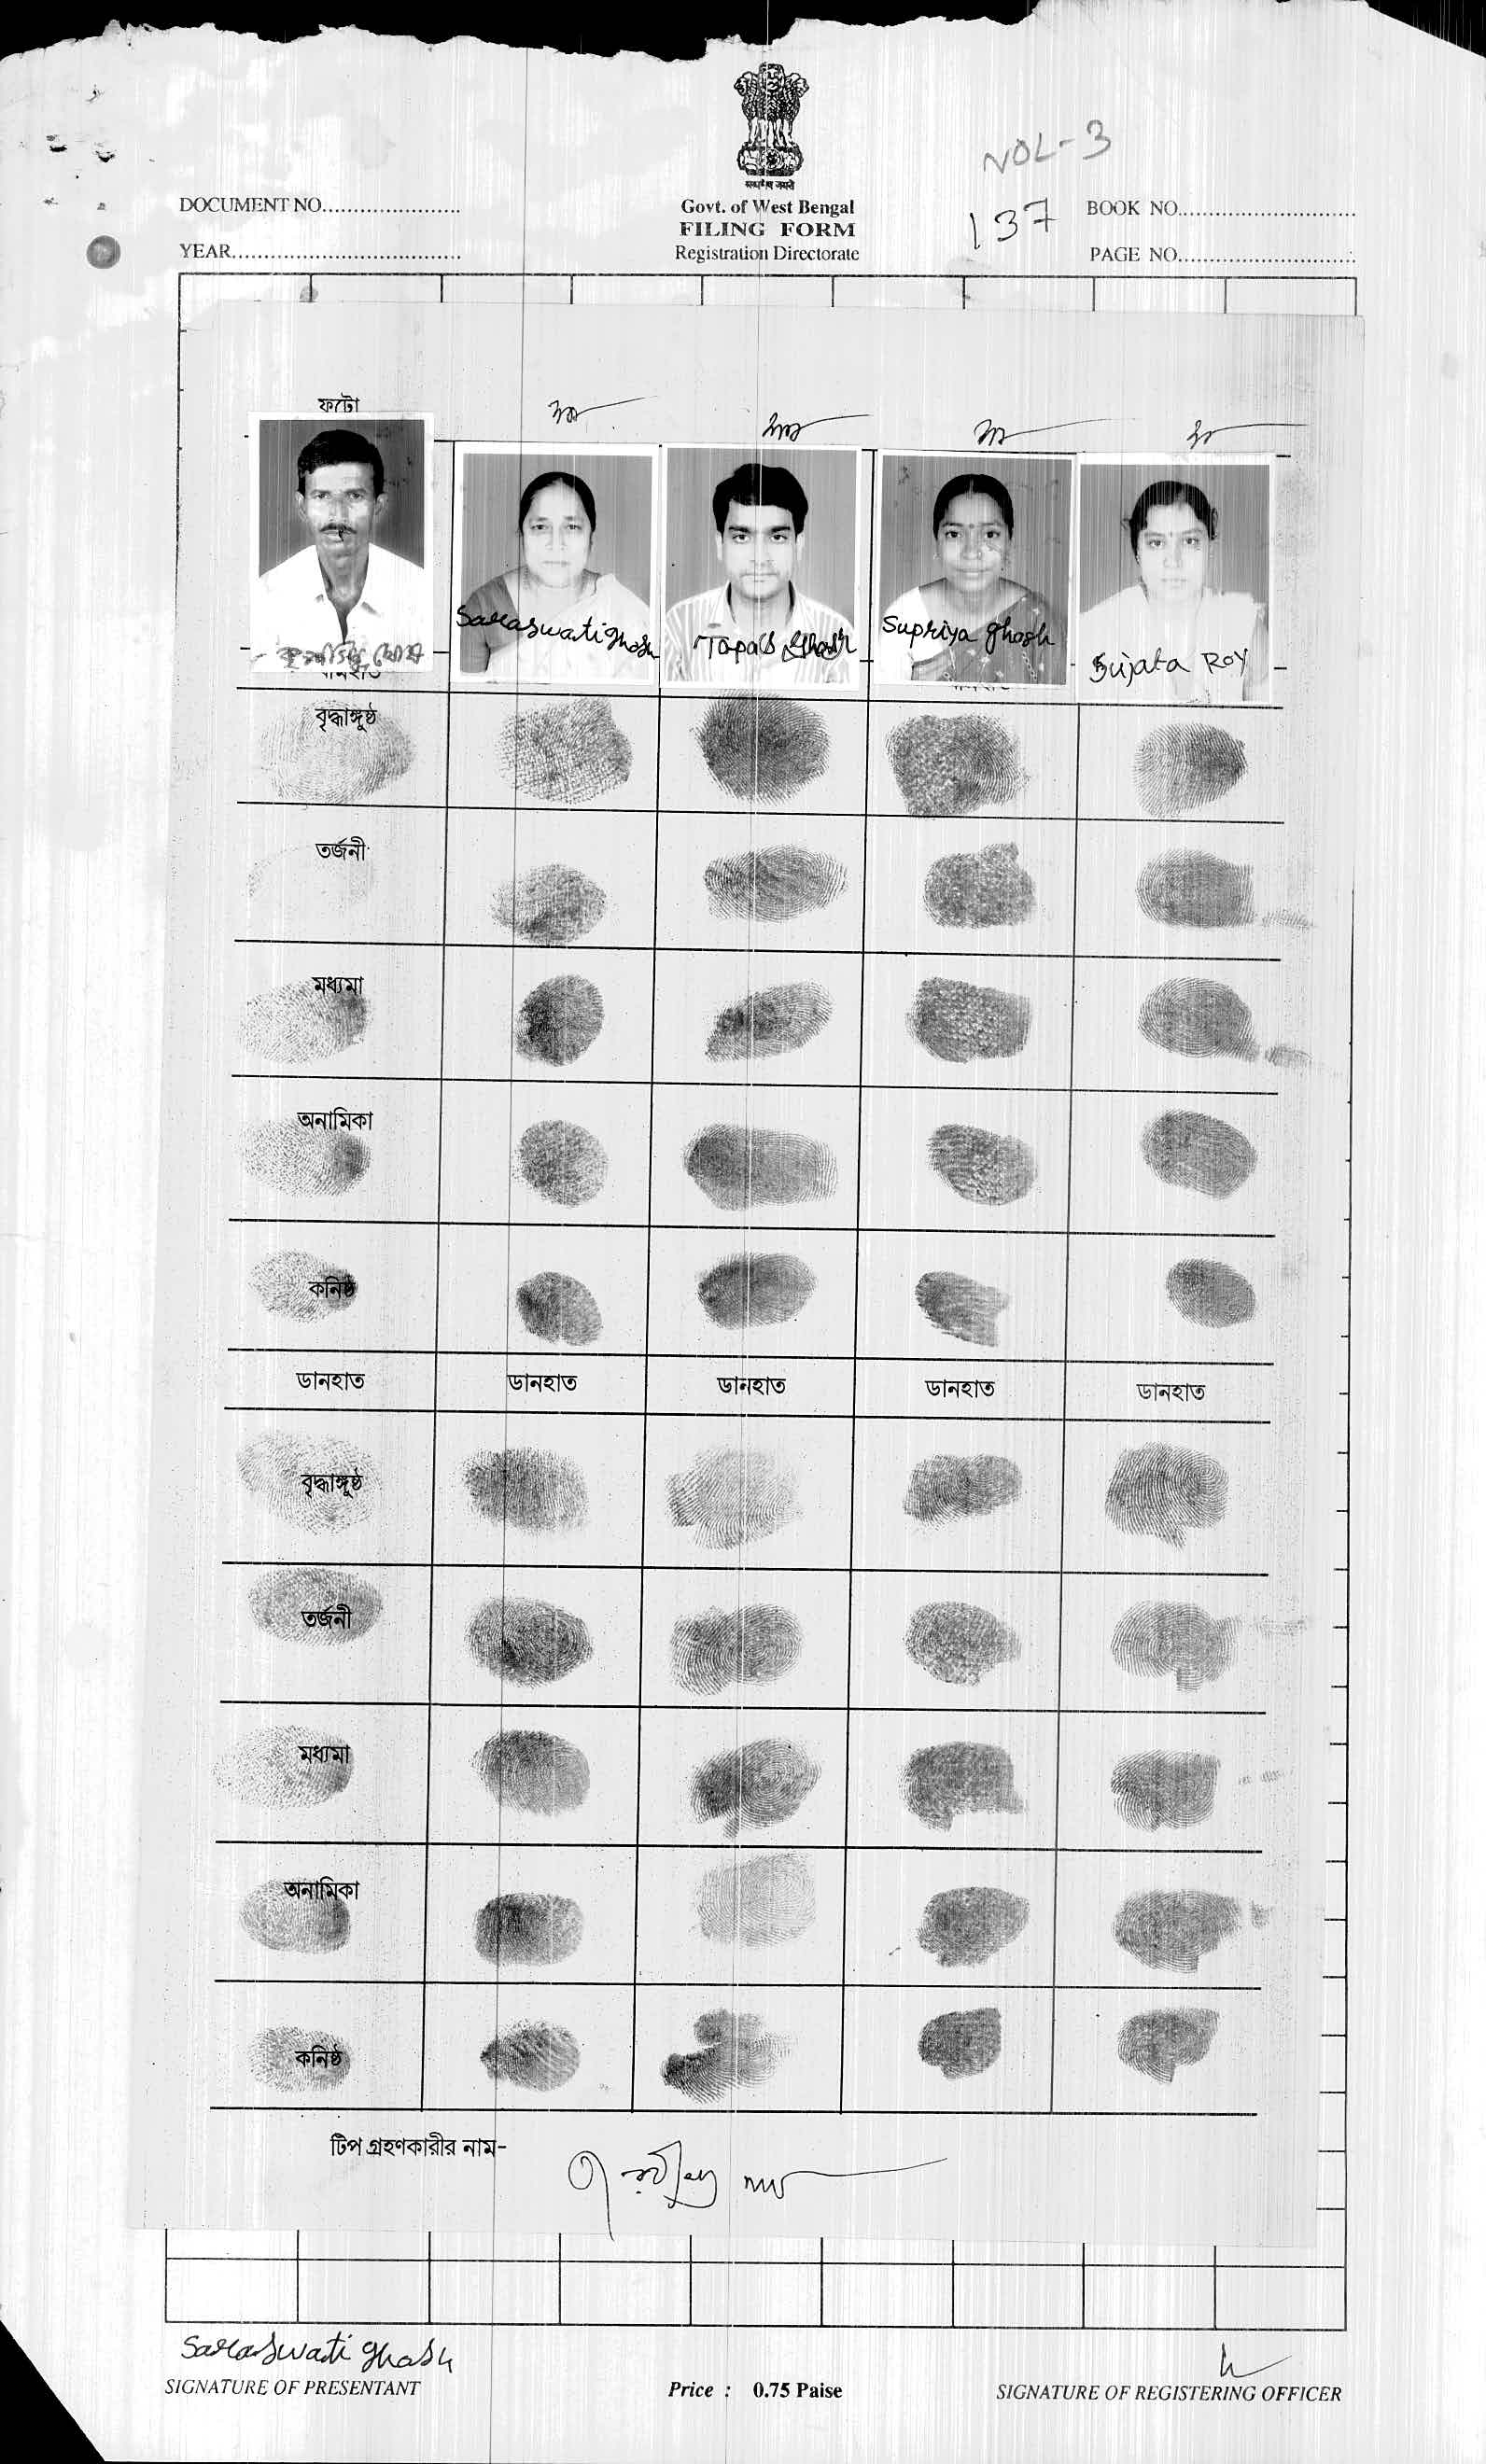 सत्यमेव जयते
VOL-3
DOCUMENT NO.
Govt. of West Bengal
137
BOOK NO.
FILING FORM
YEAR
Registration Directorate
PAGE NO.
ফটো
Saraswati Ghosh
Tapas Ghosh
Supriya Ghosh
Sujata Roy
ঘোষ
বামহাত
বৃদ্ধাঙ্গুষ্ঠ
তর্জনী
মধ্যমা
অনামিকা
কনিষ্ঠ
ডানহাত ডানহাত ডানহাত ডানহাত ডানহাত
বৃদ্ধাঙ্গুষ্ঠ
তর্জনী
মধ্যমা
অনামিকা
কনিষ্ঠ
টিপ গ্রহণকারীর নাম-
Saraswati Ghosh
SIGNATURE OF PRESENTANT
Price : 0.75 Paise
SIGNATURE OF REGISTERING OFFICER